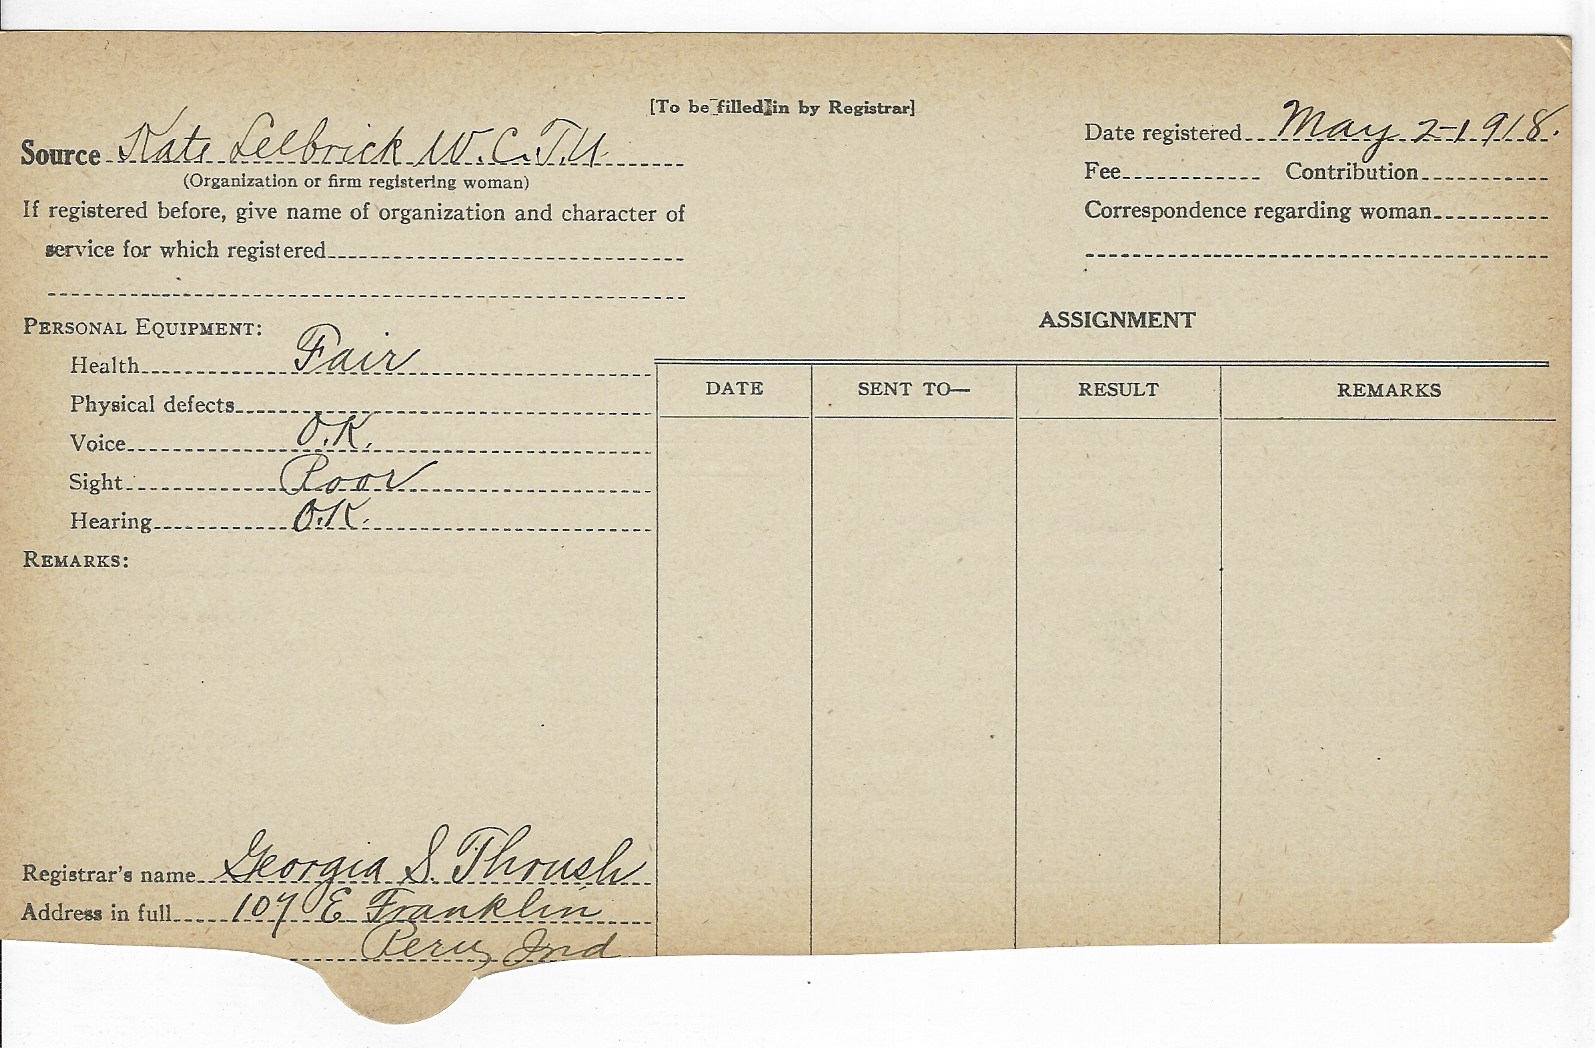 [To be filled in by Registrar]
Source Kate Lelbrick W.C.T.U.
(Organization or firm registering woman)
If registered before, give name of organization and character of
service for which registered
Date registered May 2-1918.
Fee Contribution
Correspondence regarding woman
PERSONAL EQUIPMENT:
Health Fair
Physical defects
Voice O.K.
Sight Poor
Hearing O.K.
REMARKS:
ASSIGNMENT
DATE SENT TO— RESULT REMARKS
Registrar's name Georgia S. Thrush
Address in full 107 E Franklin
Peru, Ind